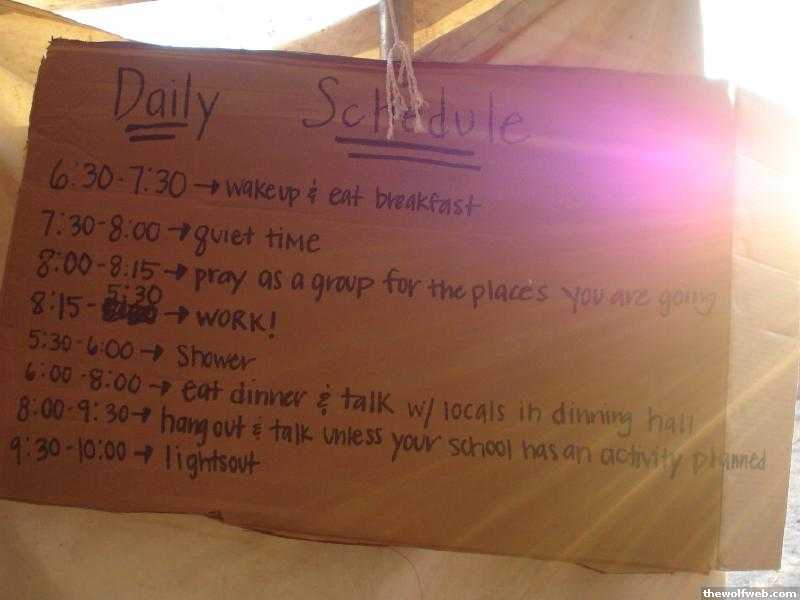 Daily Schedule
6:30-7:30 → wakeup & eat breakfast
7:30-8:00 → quiet time
8:00-8:15 → pray as a group for the places you are going
8:15-5:30 → WORK!
5:30-6:00 → Shower
6:00-8:00 → eat dinner & talk w/ locals in dinning hall
8:00-9:30 → hangout & talk unless your school has an activity planned
9:30-10:00 → lightsout
thewolfweb.com